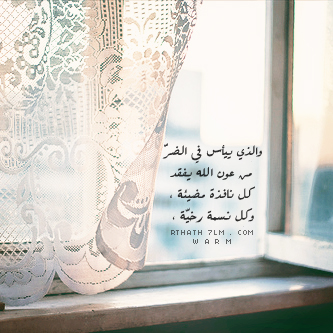 والذي ييأس في الضرّ
من عون الله يفقد
كل نافذة مضيئة ،
وكل نسمة رخيّة ،
RTHATH 7LM . COM
W A R M